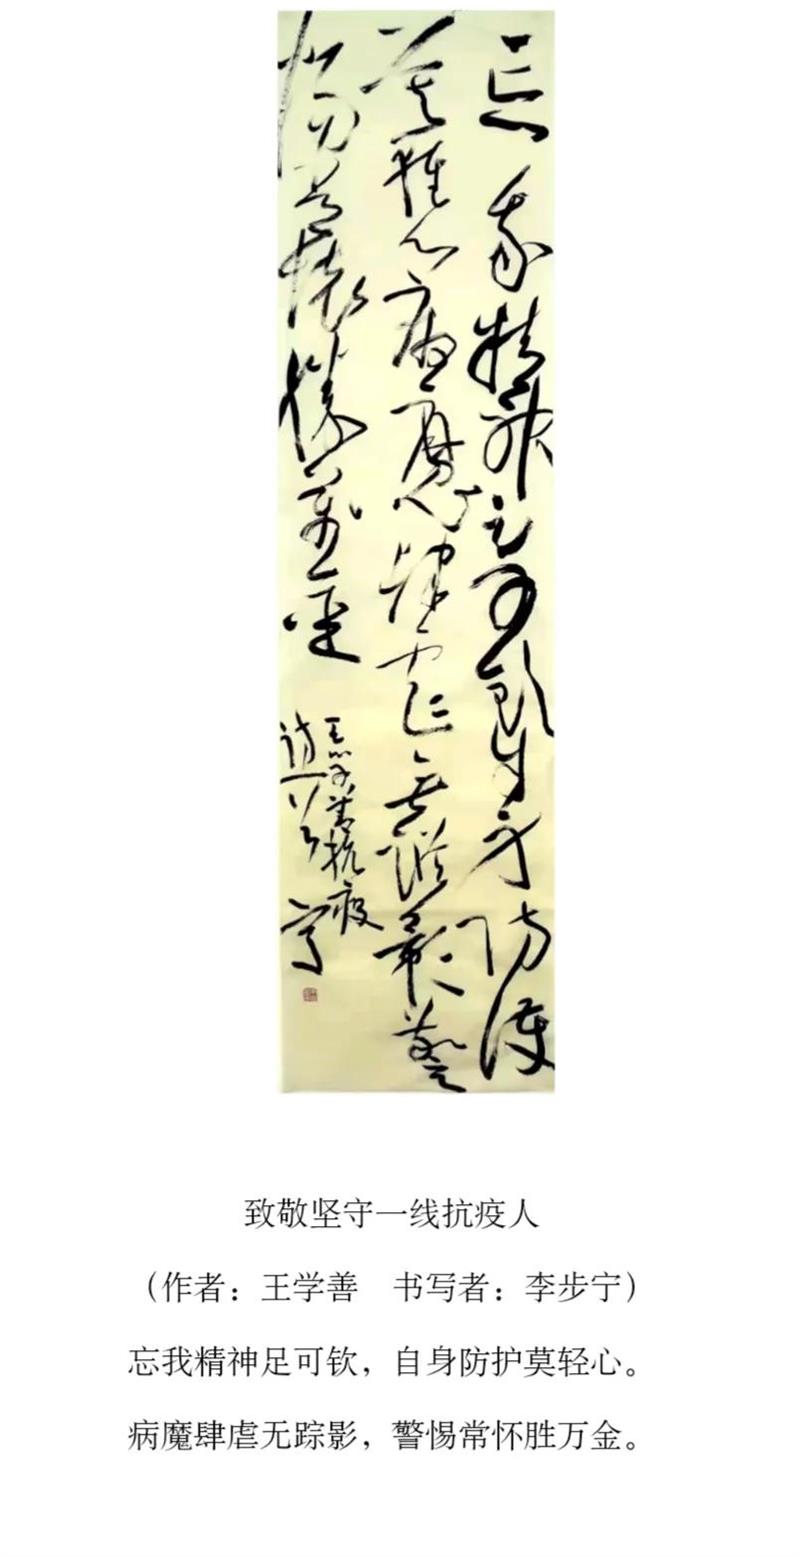 忘我精神足可欽自身防護
莫輕心病魔肆虐無踪影警
惕常懷勝萬金
王学善抗疫
詩一首
致敬坚守一线抗疫人
（作者：王学善　书写者：李步宁）
忘我精神足可钦，自身防护莫轻心。
病魔肆虐无踪影，警惕常怀胜万金。